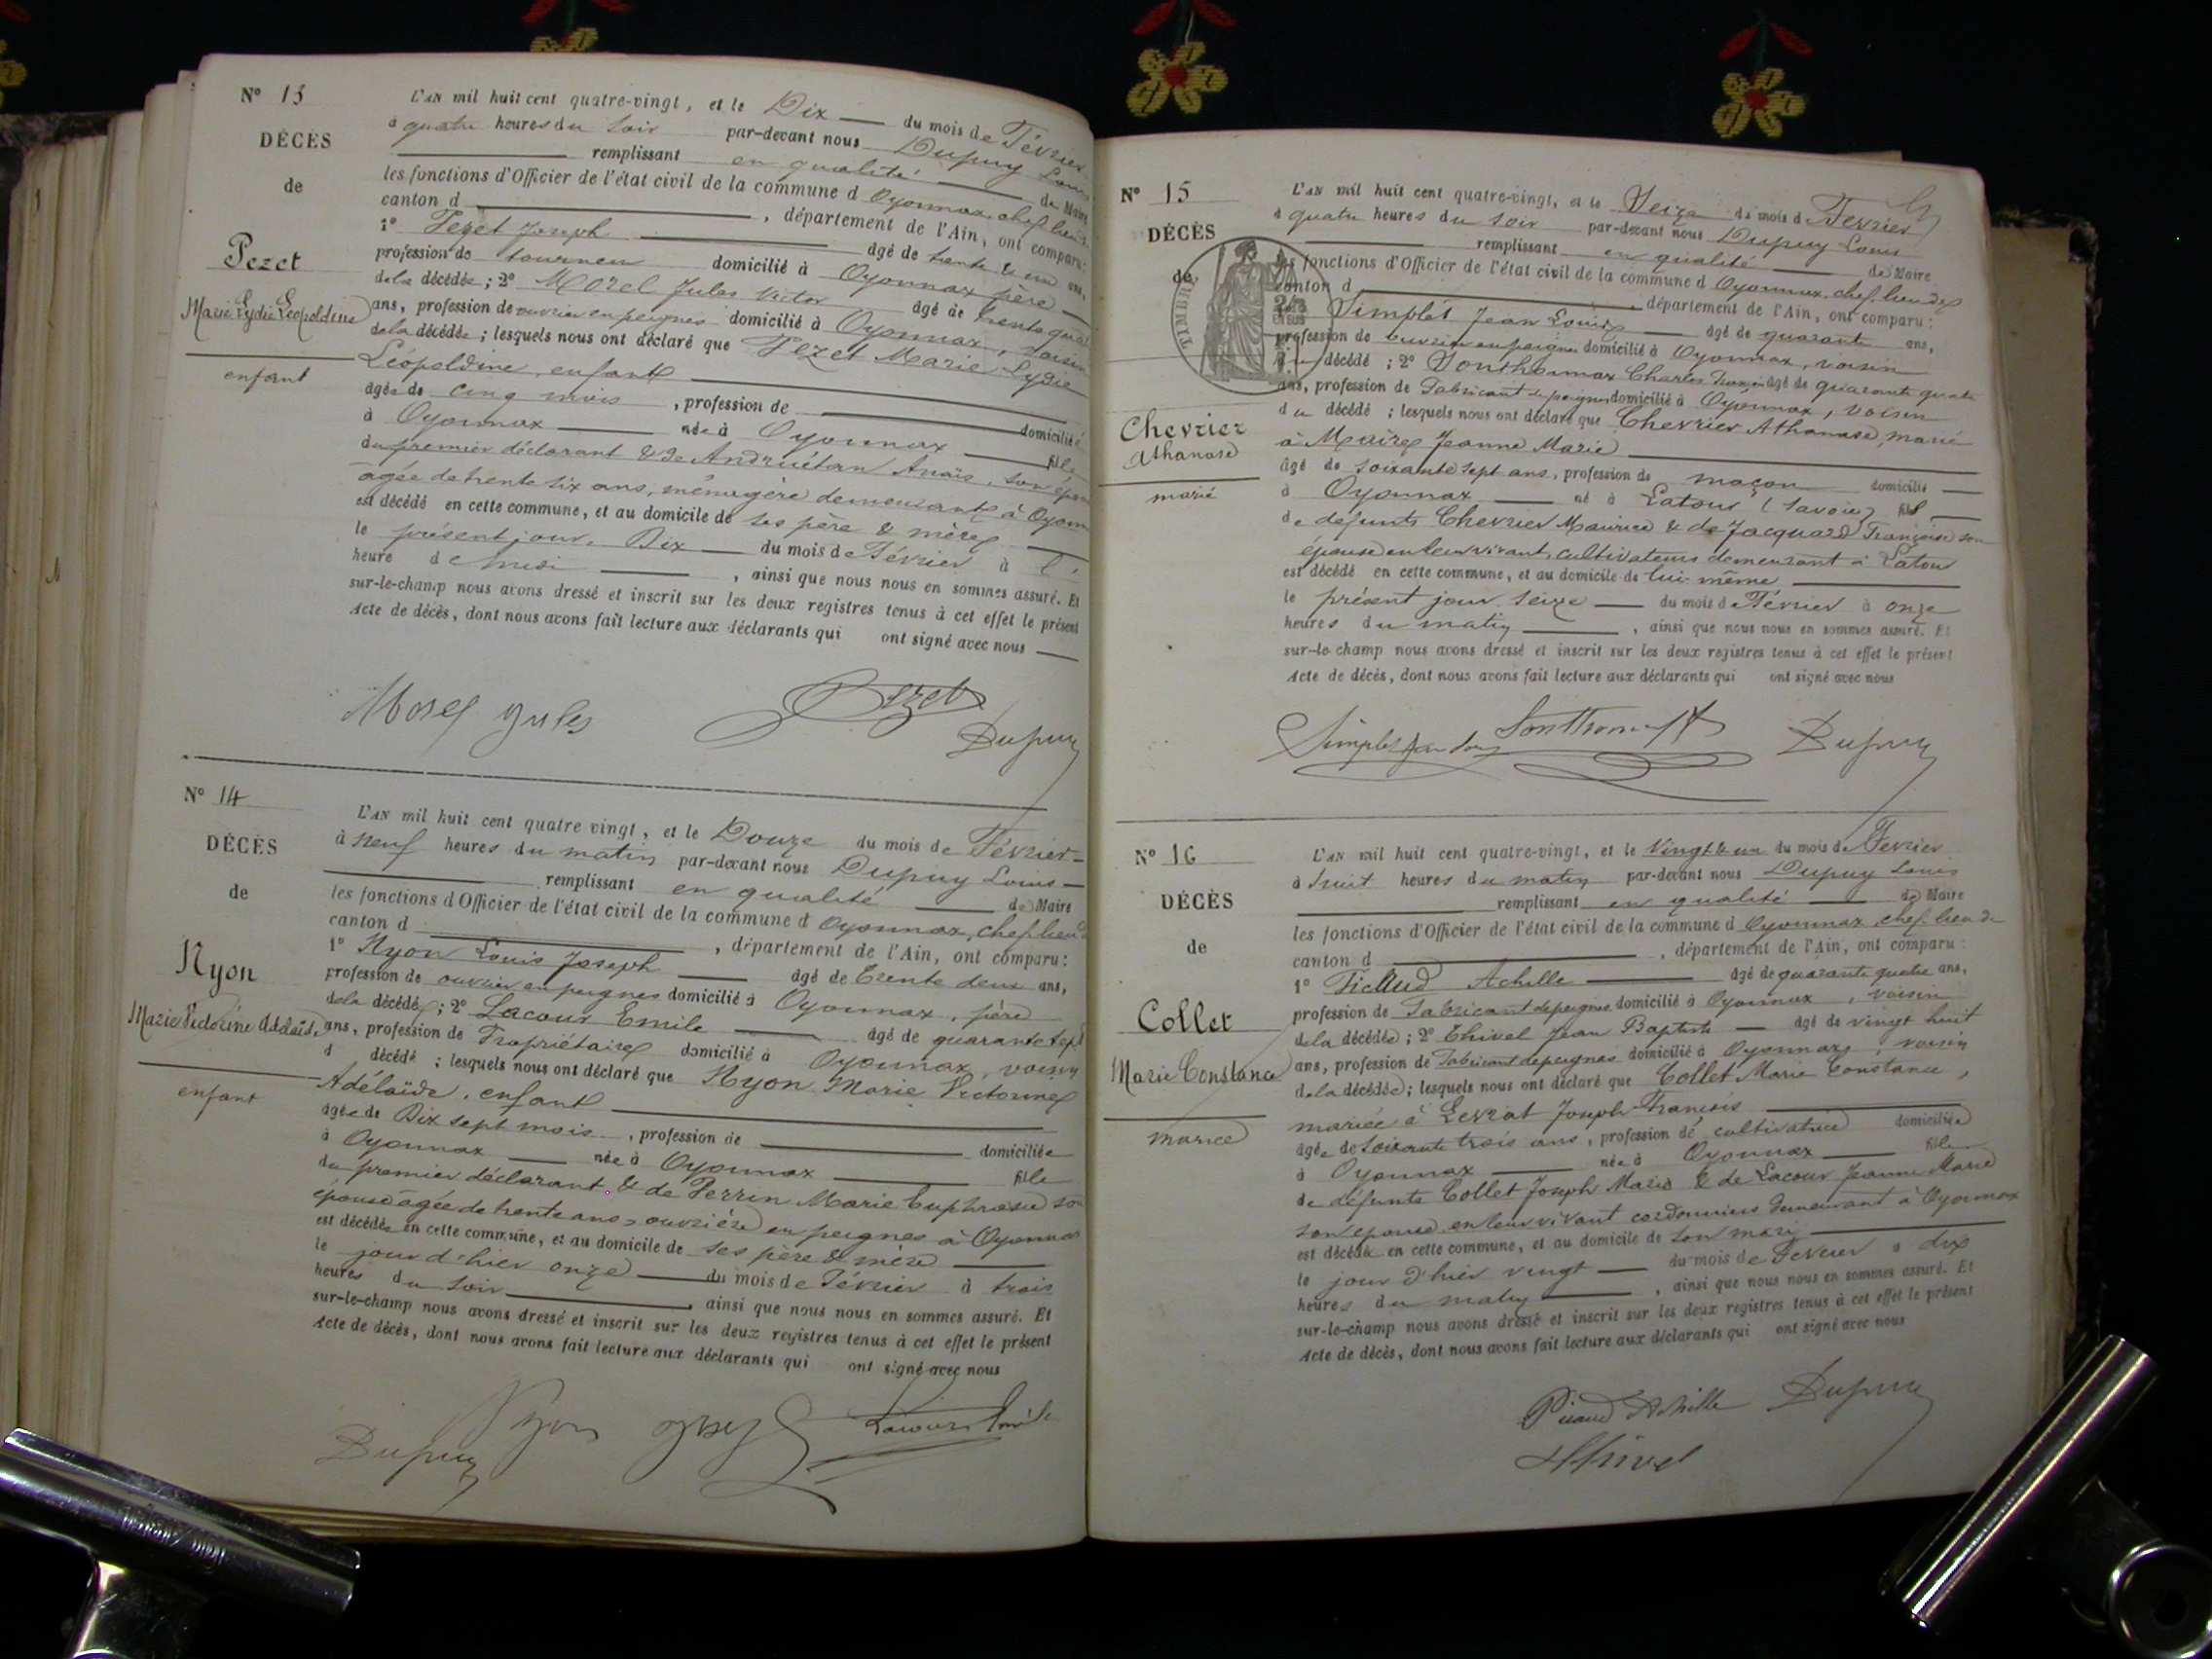 N° 13
DÉCÈS
de
Pezet
Marie Lydie Léopoldine
enfant
L'AN mil huit cent quatre-vingt, et le Dix du mois de Février
à quatre heures du soir par-devant nous Dupuy Louis
remplissant en qualité de Maire
les fonctions d'Officier de l'état civil de la commune d Oyonnax, chef lieu de
canton d , département de l'Ain, ont comparu:
1° Pezet Joseph âgé de trente & un ans,
profession de tourneur domicilié à Oyonnax père
de la décédée; 2° Morel Jules Victor âgé de trente quatre
ans, profession de ouvrier en peignes domicilié à Oyonnax, voisin
de la décédée; lesquels nous ont déclaré que Pezet Marie Lydie
Léopoldine, enfant
âgée de cinq mois, profession de domiciliée
à Oyonnax née à Oyonnax fille
du premier déclarant & de Andruétan Anaïs, son épouse
âgée de trente six ans, ménagère demeurant à Oyonnax
est décédé en cette commune, et au domicile de ses père & mère
le présent jour, Dix du mois de Février à l'
heure de midi , ainsi que nous nous en sommes assuré. Et
sur-le-champ nous avons dressé et inscrit sur les deux registres tenus à cet effet le présent
Acte de décès, dont nous avons fait lecture aux déclarants qui ont signé avec nous
Morel Jules Pezet
Dupuy
N° 14
DÉCÈS
de
Nyon
Marie Victorine Adélaïde
enfant
L'AN mil huit cent quatre vingt, et le Douze du mois de Février
à neuf heures du matin par-devant nous Dupuy Louis
remplissant en qualité de Maire
les fonctions d'Officier de l'état civil de la commune d Oyonnax, chef lieu de
canton d , département de l'Ain, ont comparu:
1° Nyon Louis Joseph âgé de trente deux ans,
profession de ouvrier en peignes domicilié à Oyonnax, père
de la décédée; 2° Lacour Emile âgé de quarante sept
ans, profession de Propriétaire domicilié à Oyonnax, voisin
d décédé; lesquels nous ont déclaré que Nyon Marie Victorine
Adélaïde, enfant
âgée de Dix sept mois, profession de domiciliée
à Oyonnax née à Oyonnax fille
du premier déclarant & de Perrin Marie Euphrasie son
épouse âgée de trente ans, ouvrière en peignes à Oyonnax
est décédée en cette commune, et au domicile de ses père & mère
le jour d'hier onze du mois de Février à trois
heures du soir , ainsi que nous nous en sommes assuré. Et
sur-le-champ nous avons dressé et inscrit sur les deux registres tenus à cet effet le présent
Acte de décès, dont nous avons fait lecture aux déclarants qui ont signé avec nous
Nyon Lacour Emile
Dupuy
N° 15
DÉCÈS
de
TIMBRE
Chevrier
Athanase
marié
L'AN mil huit cent quatre-vingt, et le Seize du mois d Février
à quatre heures du soir par-devant nous Dupuy Louis
remplissant en qualité de Maire
les fonctions d'Officier de l'état civil de la commune d Oyonnax, chef lieu de
canton d , département de l'Ain, ont comparu:
Simplet Jean Louis âgé de quarante ans,
profession de ouvrier en peignes domicilié à Oyonnax, voisin
du décédé; 2° Sonthonnax Charles âgé de quarante quatre
ans, profession de Fabricant de peignes domicilié à Oyonnax, voisin
du décédé; lesquels nous ont déclaré que Chevrier Athanase, marié
à Maire Jeanne Marie
âgé de soixante sept ans, profession de maçon domicilié
à Oyonnax né à Latour (Savoie) fils
de défunts Chevrier Maurice & de Jacquard Françoise son
épouse en leur vivant, cultivateurs demeurant à Latour
est décédé en cette commune, et au domicile de lui-même
le présent jour seize du mois de Février à onze
heures du matin , ainsi que nous nous en sommes assuré. Et
sur-le-champ nous avons dressé et inscrit sur les deux registres tenus à cet effet le présent
Acte de décès, dont nous avons fait lecture aux déclarants qui ont signé avec nous
Simplet Jean Louis Sonthonnax Dupuy
N° 16
DÉCÈS
de
Collet
Marie Constance
mariée
L'AN mil huit cent quatre-vingt, et le Vingt & un du mois de Février
à huit heures du matin par-devant nous Dupuy Louis
remplissant en qualité de Maire
les fonctions d'Officier de l'état civil de la commune d Oyonnax, chef lieu de
canton d , département de l'Ain, ont comparu:
1° Picaud Achille âgé de quarante quatre ans,
profession de Fabricant de peignes domicilié à Oyonnax, voisin
de la décédée; 2° Thivel Jean Baptiste âgé de vingt huit
ans, profession de Fabricant de peignes domicilié à Oyonnax, voisin
de la décédée; lesquels nous ont déclaré que Collet Marie Constance,
mariée à Levrat Joseph François
âgée de Soixante trois ans, profession de cultivatrice domiciliée
à Oyonnax née à Oyonnax fille
de défunts Collet Joseph Marie & de Lacour Jeanne Marie
son épouse en leur vivant cordonniers demeurant à Oyonnax
est décédée en cette commune, et au domicile de son mari
le jour d'hier vingt du mois de Février à dix
heures du matin , ainsi que nous nous en sommes assuré. Et
sur-le-champ nous avons dressé et inscrit sur les deux registres tenus à cet effet le présent
Acte de décès, dont nous avons fait lecture aux déclarants qui ont signé avec nous
Picaud Achille Dupuy
Thivel